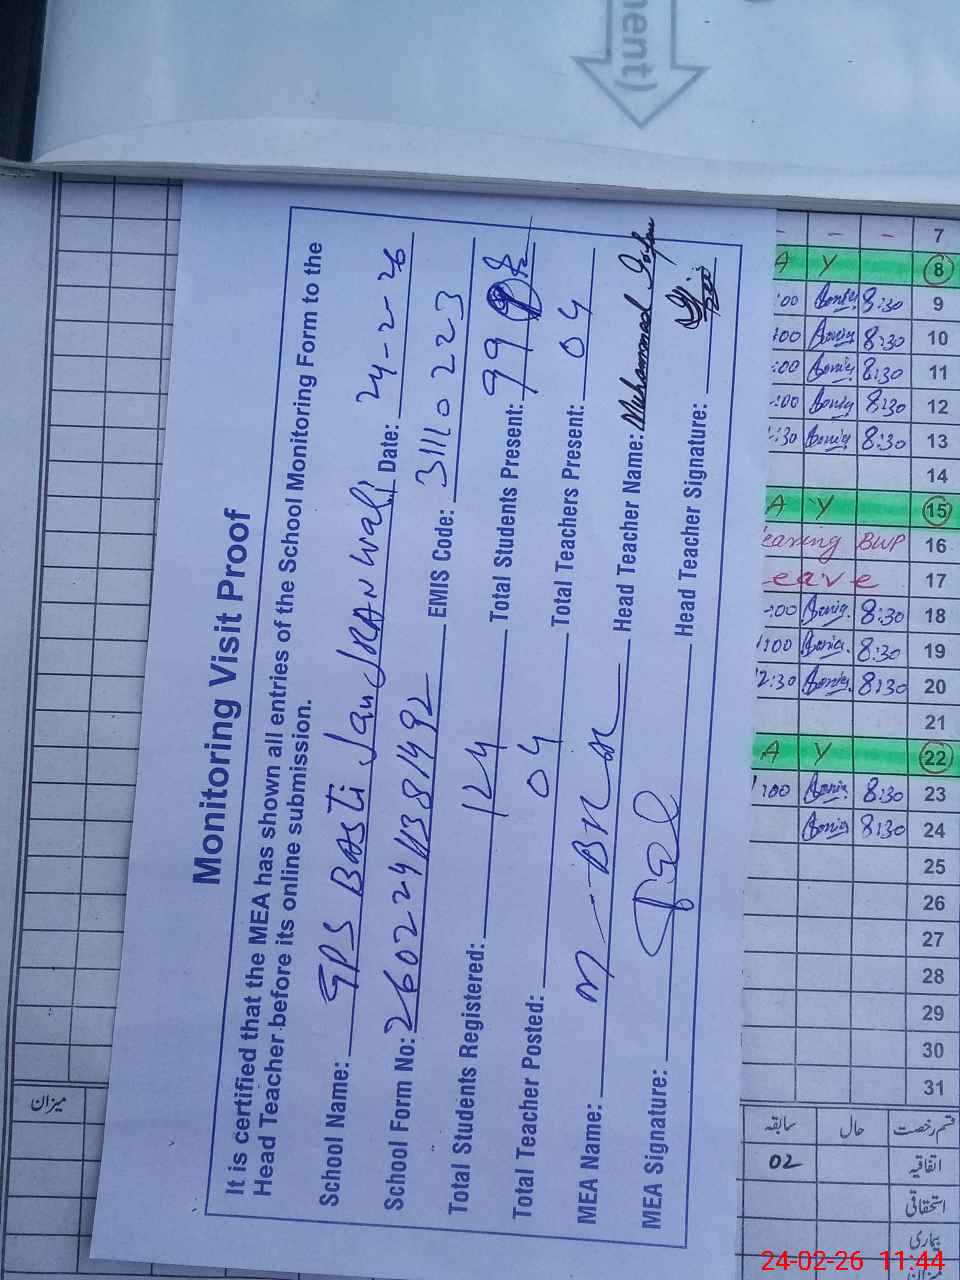 nent)
Monitoring Visit Proof
It is certified that the MEA has shown all entries of the School Monitoring Form to the
Head Teacher before its online submission.
School Name: GPS BASTi Jan JRAN Wali Date: 24-2-26
School Form No: EMIS Code: 31110223
Total Students Registered: 124 Total Students Present: 99
Total Teacher Posted: 04 Total Teachers Present: 04
MEA Name: Head Teacher Name: Muhammad
MEA Signature: Head Teacher Signature:
- - - 7
A Y 8
:00 8:30 9
:00 8:30 10
:00 8:30 11
:00 8:30 12
:30 8:30 13
14
A Y 15
BWP 16
eave 17
:00 8:30 18
1:00 8:30 19
12:30 8:30 20
21
A Y 22
1:00 8:30 23
8:30 24
25
26
27
28
29
30
31
میزان
قسم رخصت حال سابقہ
اتفاقیہ 02
استحقاقی
بیماری
24-02-26 11:44